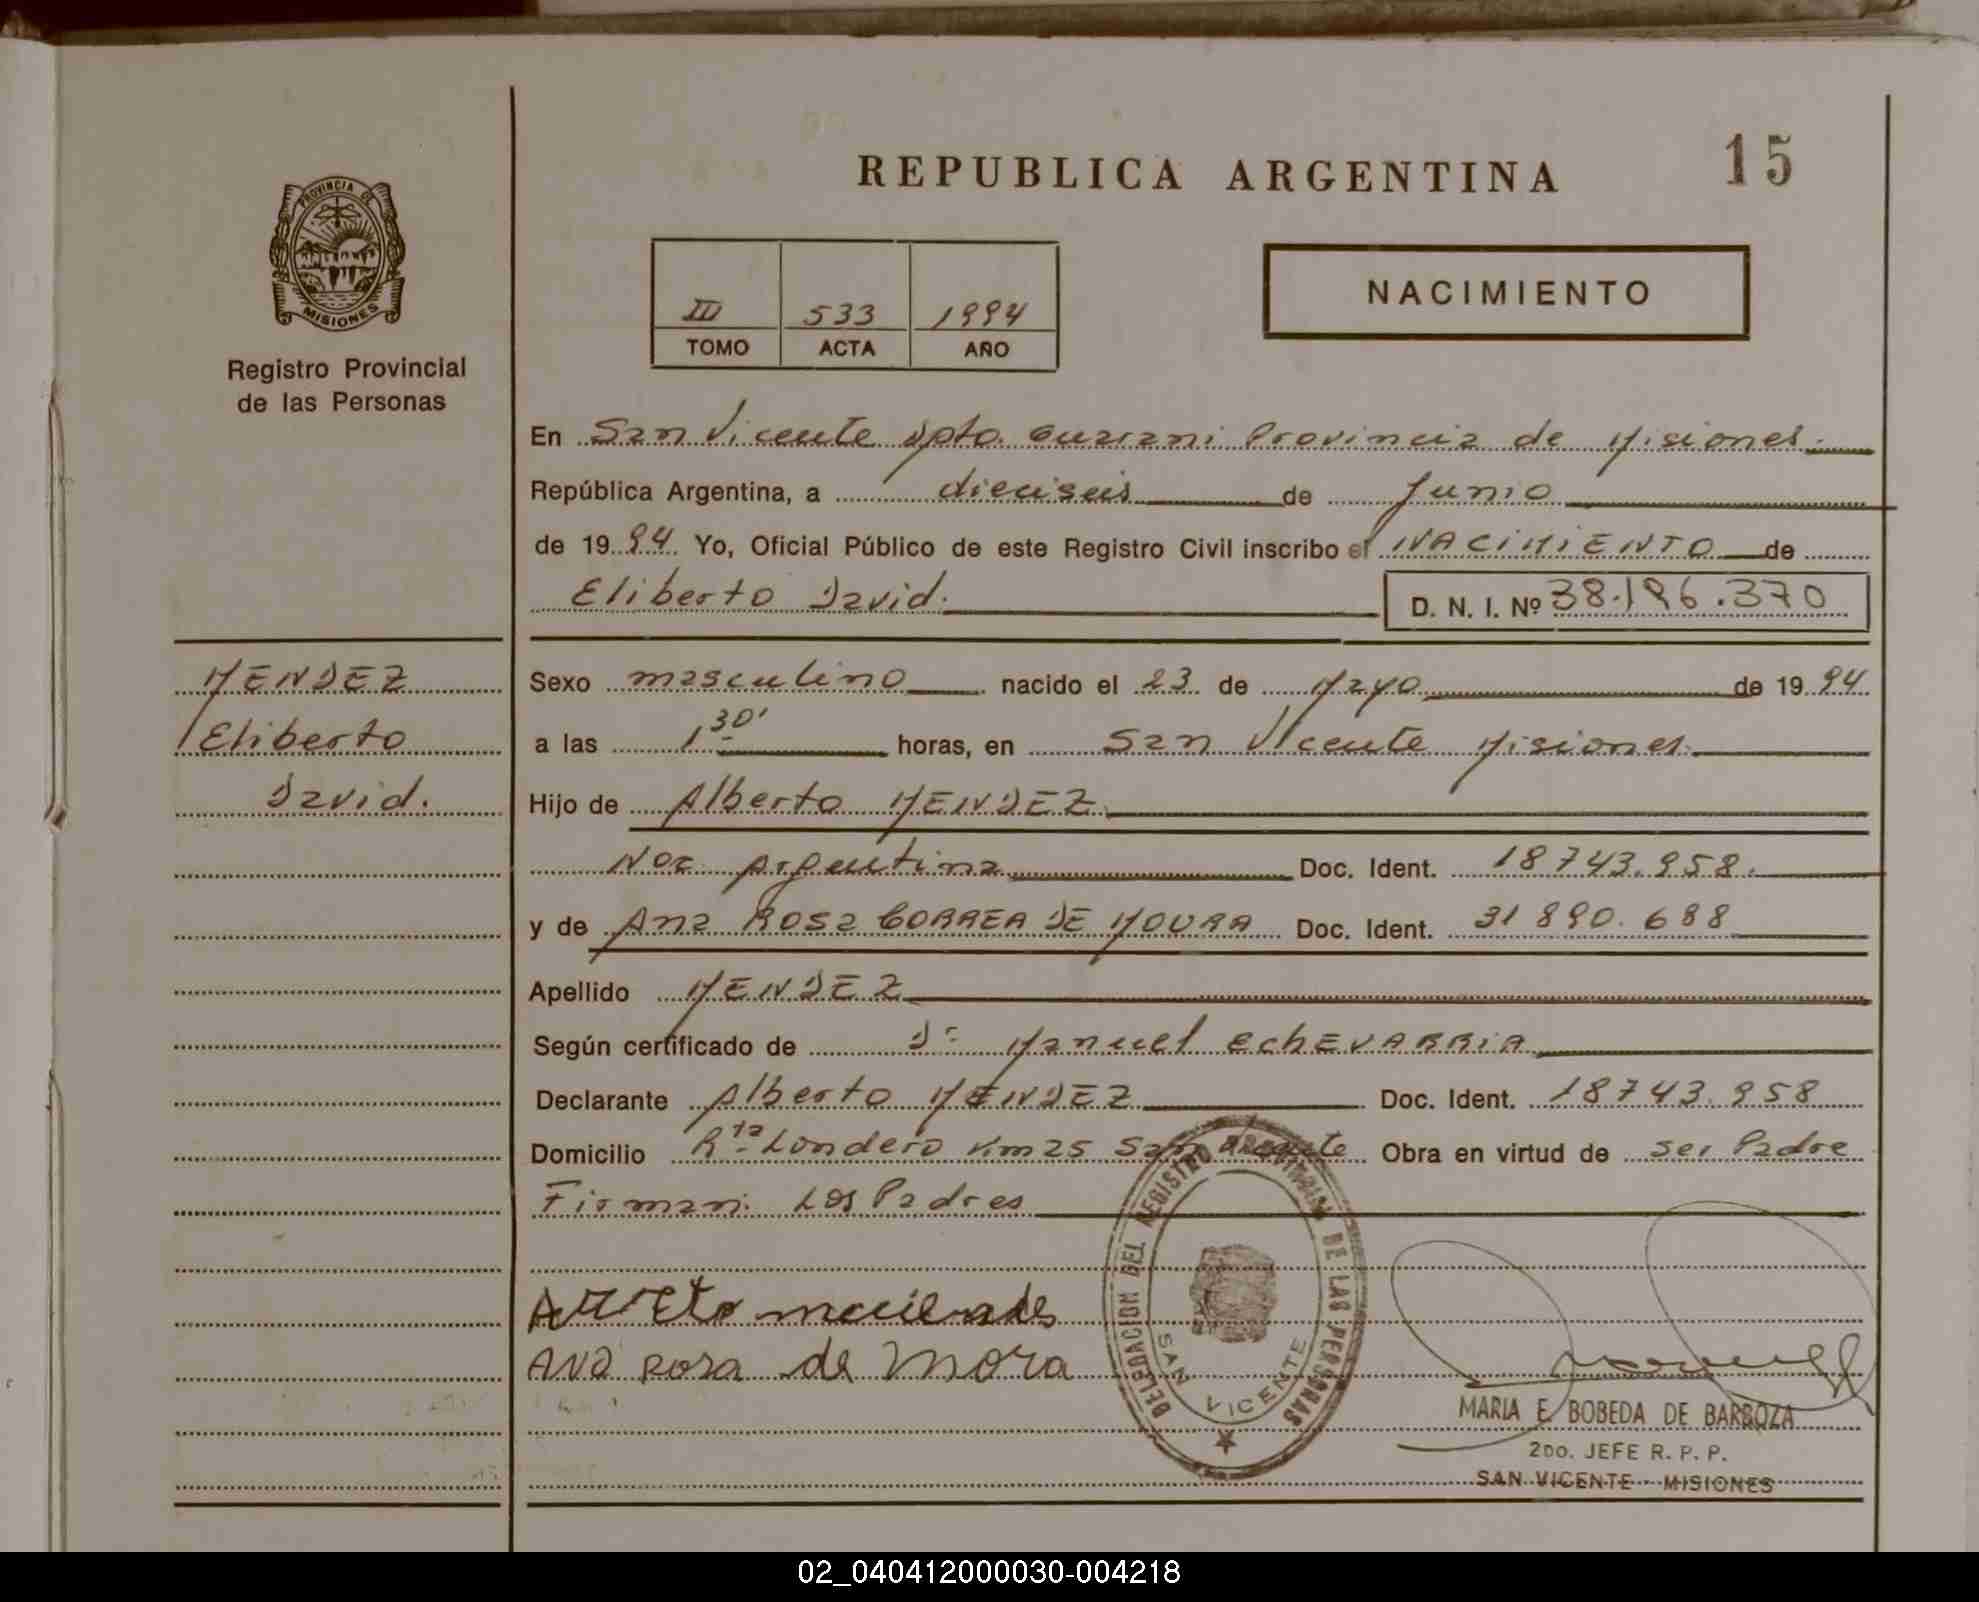 REPUBLICA ARGENTINA
15
PROVINCIA DE
MISIONES
Registro Provincial
de las Personas
III 533 1994
TOMO ACTA AÑO
NACIMIENTO
En San Vicente Dpto. Guarani Provincia de Misiones.
República Argentina, a dieciseis de Junio
de 1994 Yo, Oficial Público de este Registro Civil inscribo el NACIMIENTO de
Eliberto David. D. N. I. Nº 38.196.370
MENDEZ
Eliberto
David.
Sexo masculino nacido el 23 de Mayo de 1994
a las 1 30' horas, en San Vicente Misiones.
Hijo de Alberto MENDEZ.
Nac. Argentina Doc. Ident. 18743.958.
y de Ana ROSA CORREA DE MOURA Doc. Ident. 31890.688
Apellido MENDEZ
Según certificado de Dr. Manuel EchEVARRiA
Declarante Alberto MENDEZ Doc. Ident. 18743.958
Domicilio Rta. Londero Km 25 San Vicente Obra en virtud de ser Padre
Firman: Los Padres
Ana Rosa de Mora
DELEGACION DEL REGISTRO PROVINCIAL DE LAS PERSONAS
SAN VICENTE
MARIA E. BOBEDA DE BARBOZA
2DO. JEFE R. P. P.
SAN VICENTE - MISIONES
02_040412000030-004218